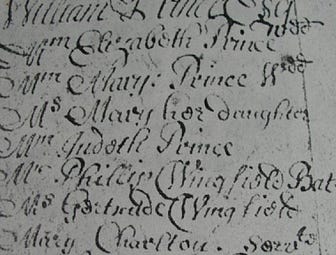 William Prince Esqr
Mrs Elizabeth Prince Wdd
Mrs Mary: Prince Wdd
Ms Mary her daughter
Mrs Judeth Prince
Mr Phillip Wingfield Bat
Ms Gertrude Wingfield
Mary Charlton. Servts